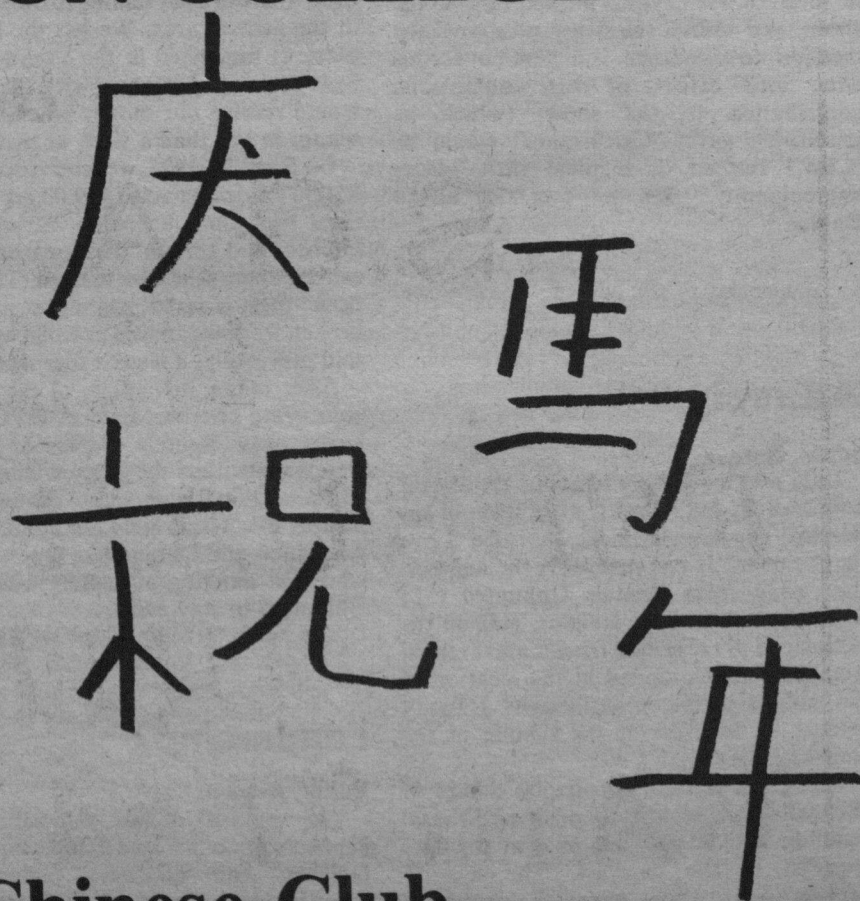 庆祝
馬年
Chinese Club